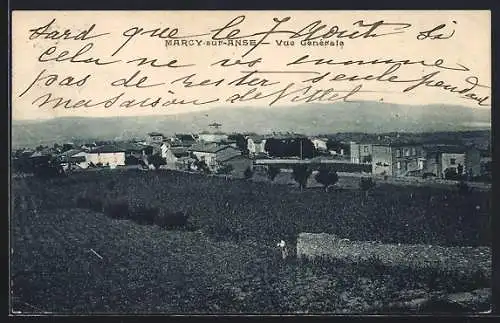 tard que le 7 Août, si
MARCY-sur-ANSE — Vue Générale
cela ne vs ennuie
pas de rester seule pendant
ma saison de Vittel